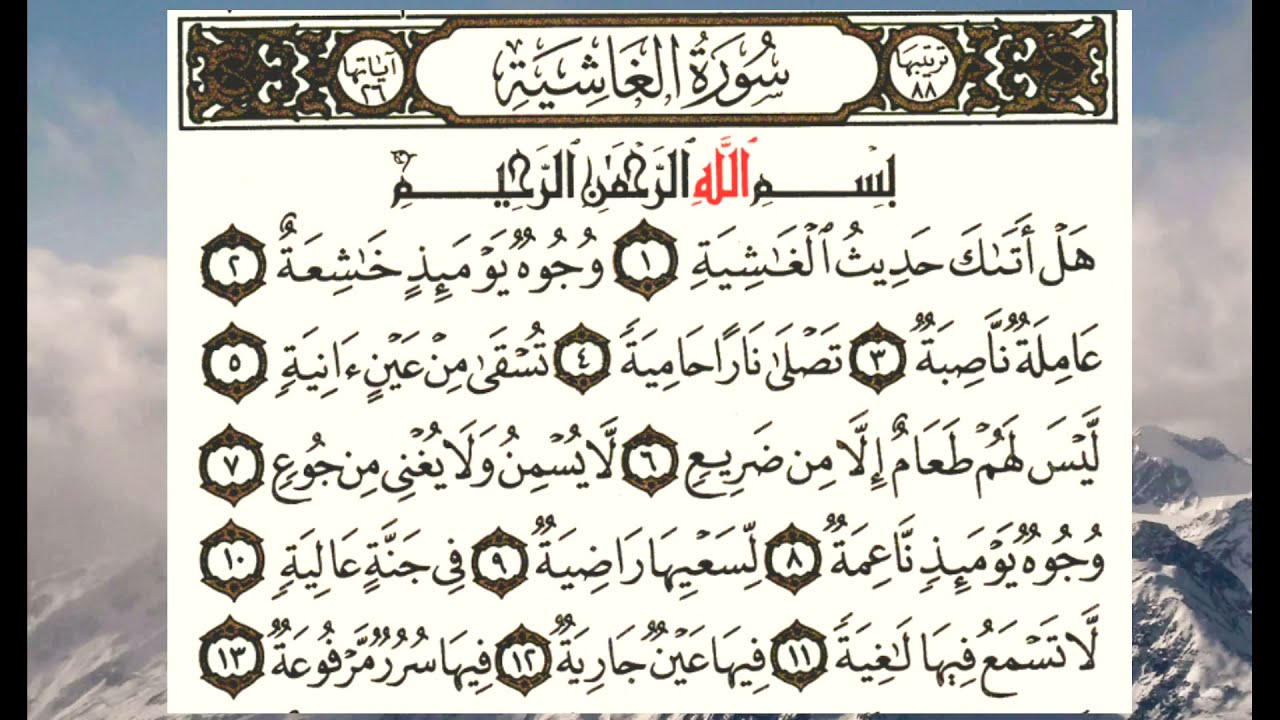 ترتيبها ٨٨ سُورَةُ الغَاشِيَةِ آياتها ٢٦
بِسْمِ ٱللَّهِ ٱلرَّحْمَٰنِ ٱلرَّحِيمِ
هَلْ أَتَىٰكَ حَدِيثُ ٱلْغَٰشِيَةِ ١ وُجُوهٌ يَوْمَئِذٍ خَٰشِعَةٌ ٢
عَامِلَةٌ نَّاصِبَةٌ ٣ تَصْلَىٰ نَارًا حَامِيَةً ٤ تُسْقَىٰ مِنْ عَيْنٍ ءَانِيَةٍ ٥
لَّيْسَ لَهُمْ طَعَامٌ إِلَّا مِن ضَرِيعٍ ٦ لَّا يُسْمِنُ وَلَا يُغْنِى مِن جُوعٍ ٧
وُجُوهٌ يَوْمَئِذٍ نَّاعِمَةٌ ٨ لِّسَعْيِهَا رَاضِيَةٌ ٩ فِى جَنَّةٍ عَالِيَةٍ ١٠
لَّا تَسْمَعُ فِيهَا لَٰغِيَةً ١١ فِيهَا عَيْنٌ جَارِيَةٌ ١٢ فِيهَا سُرُرٌ مَّرْفُوعَةٌ ١٣